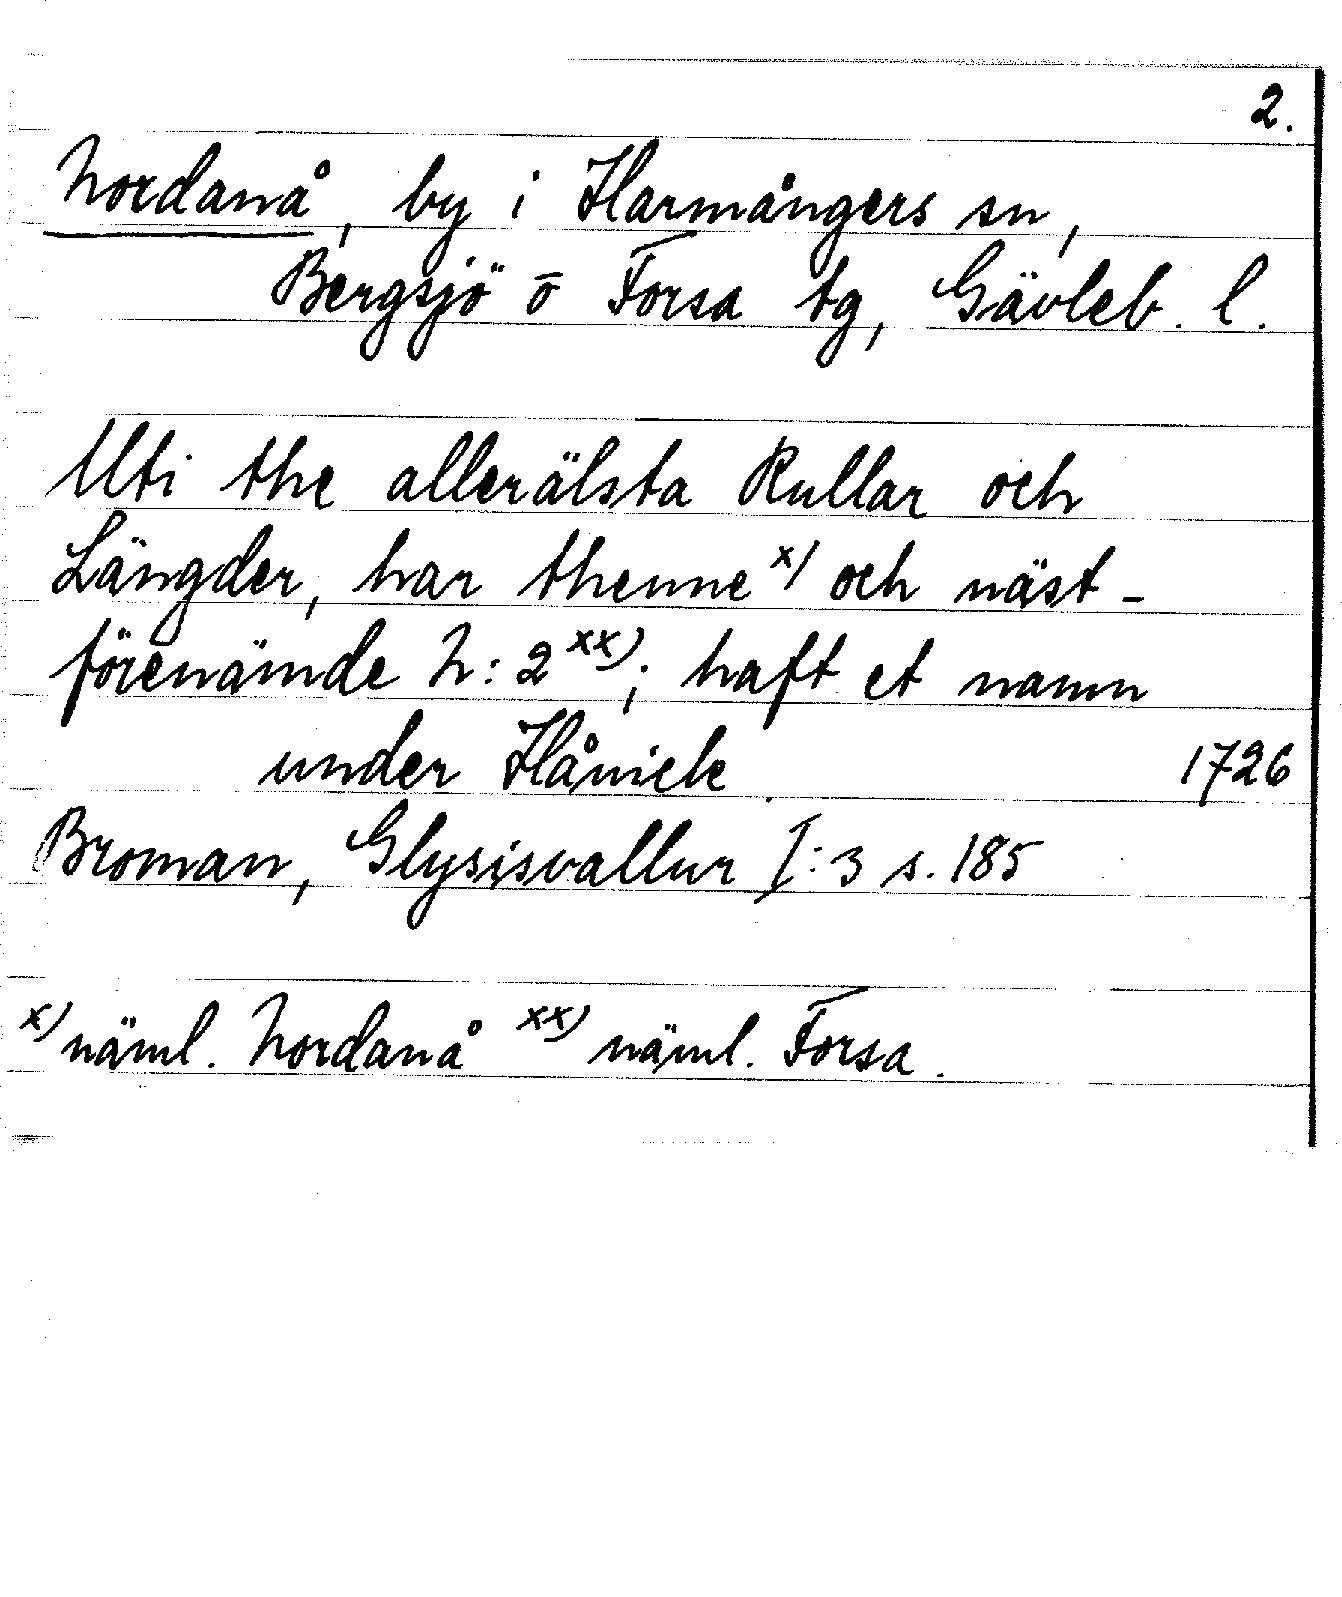 2.
Nordanå, by i Harmångers sn,
Bergsjö o Forsa tg, Gävleb. l.
Uti the allerälsta Rullar och
Längder, har thenne x) och näst-
förenämde N: 2 xx); haft et namn
under Flåniele. 1726
Broman, Glysisvallur I:3 s. 185
x) näml. Nordanå xx) näml. Forsa.